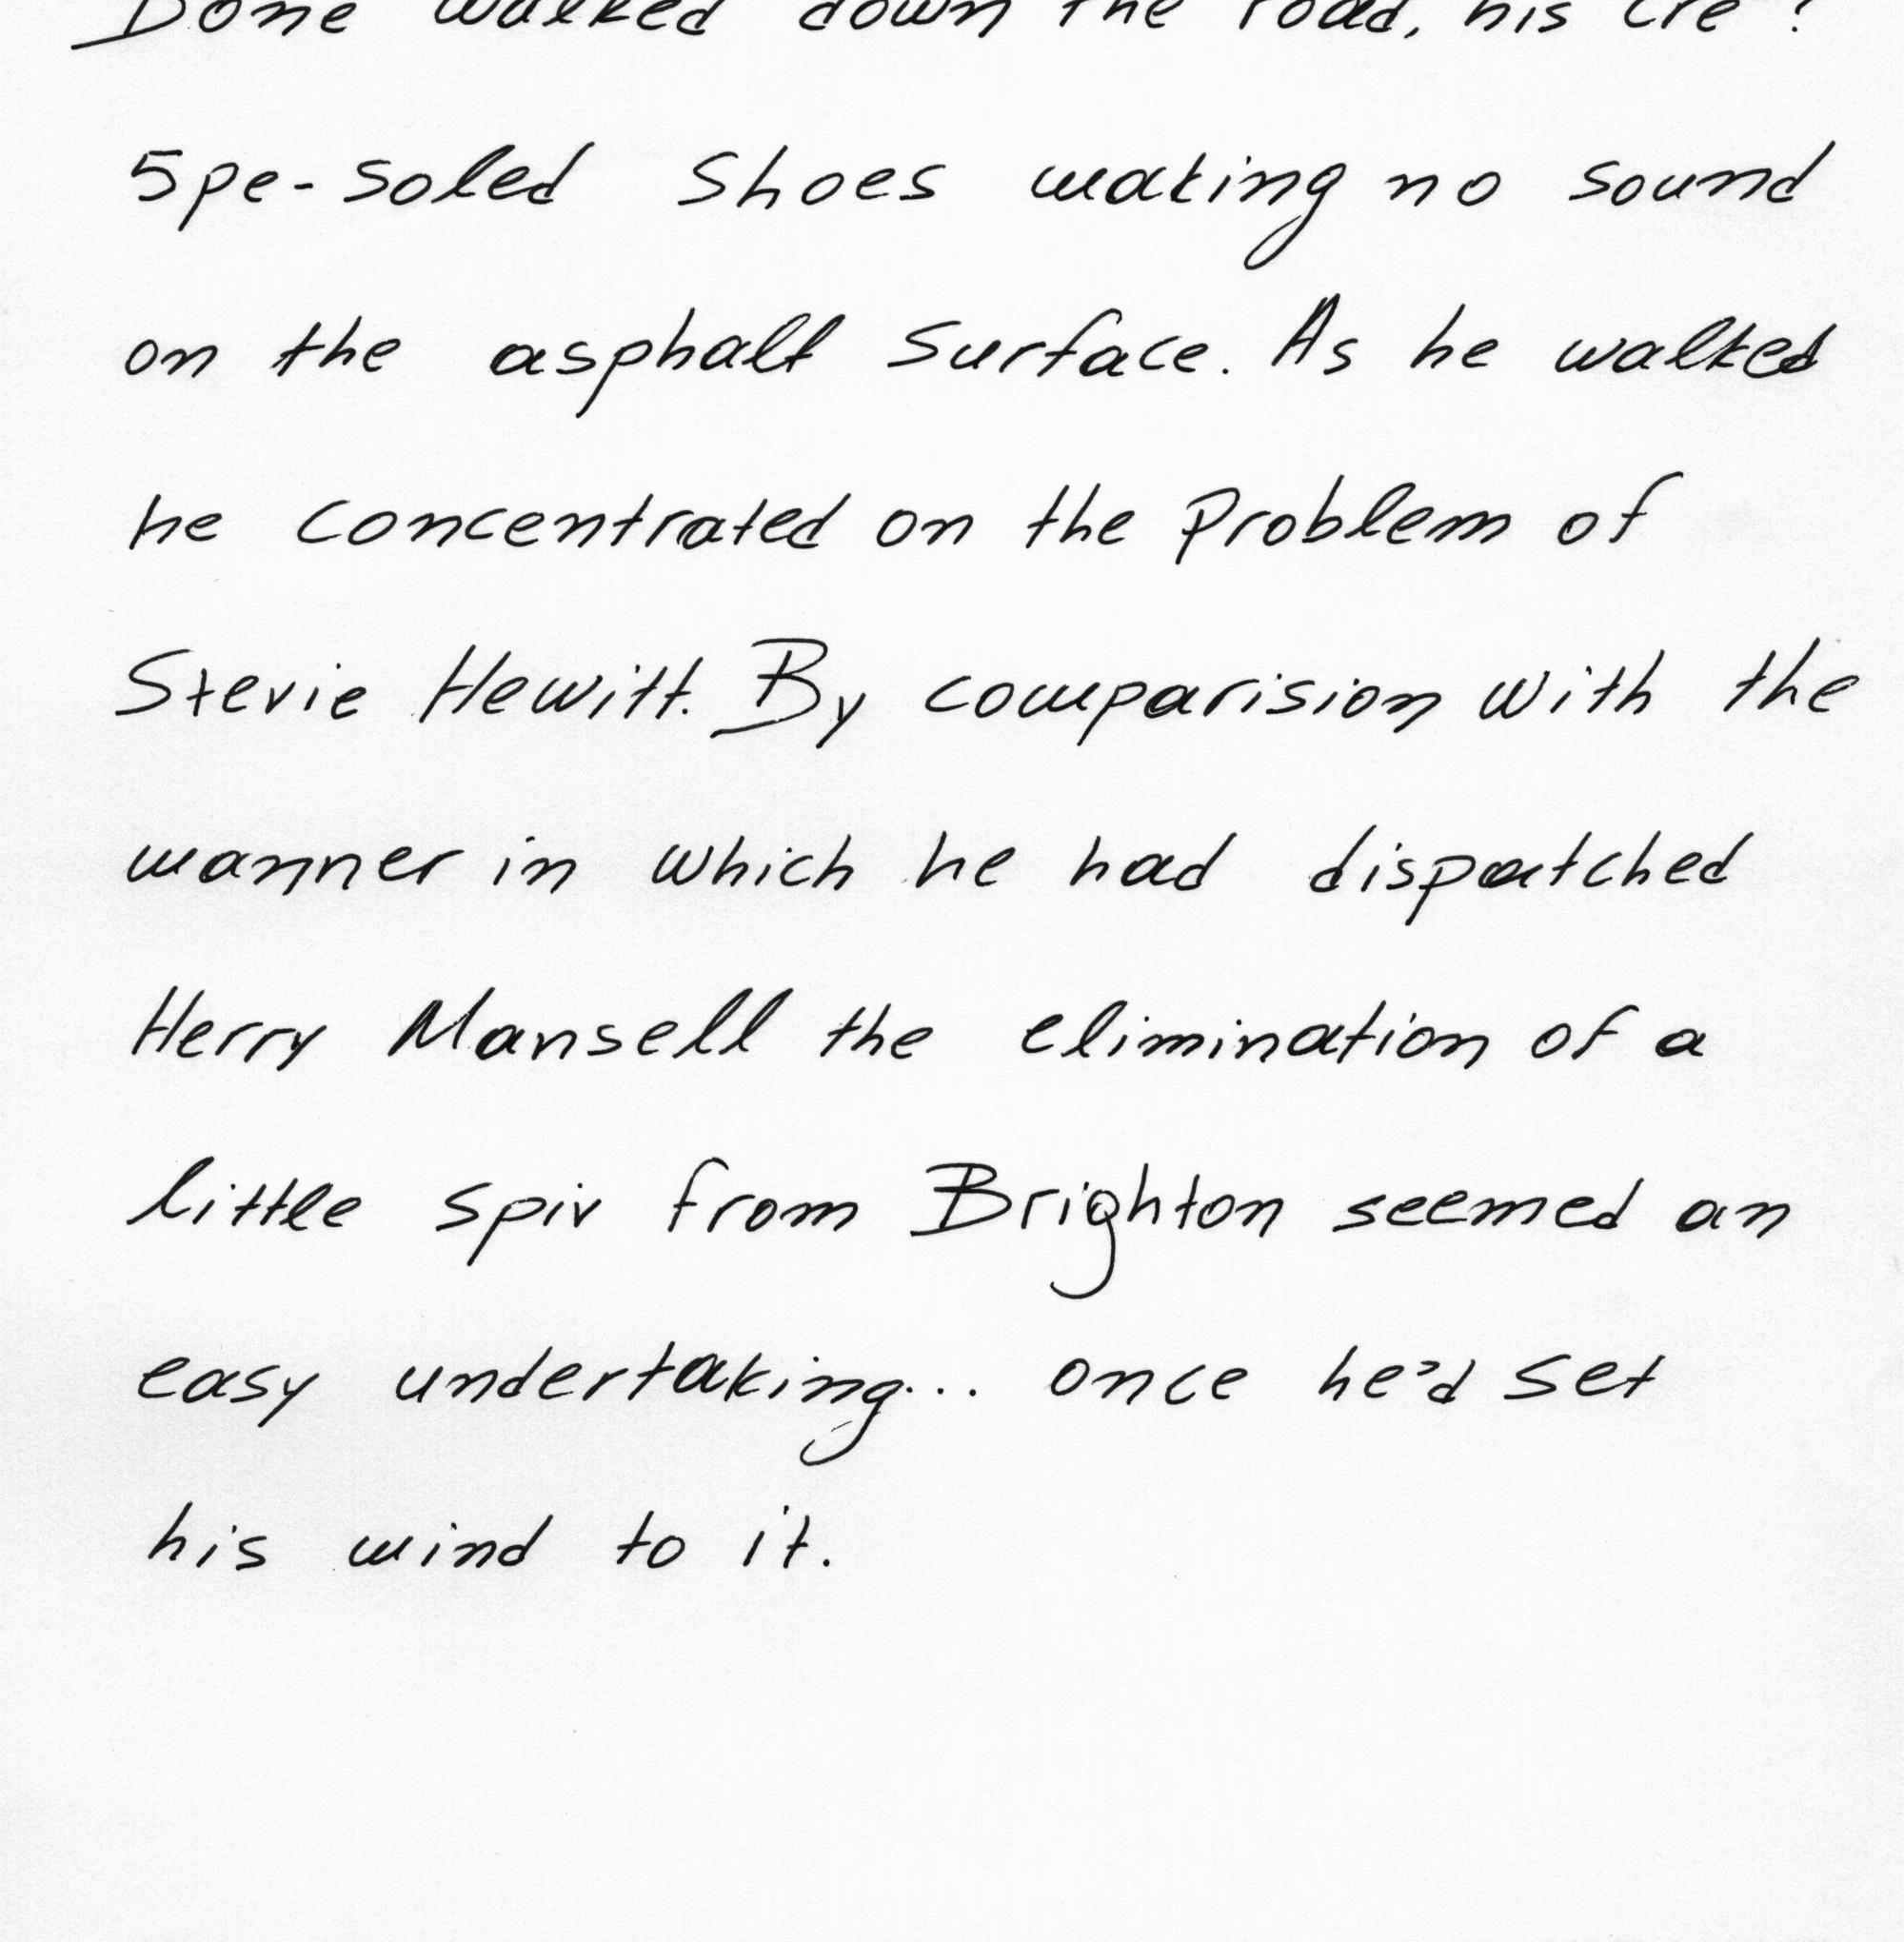 Done walked down the road, his cre
5pe-soled shoes making no sound
on the asphalt surface. As he walked
he concentrated on the problem of
Stevie Hewitt. By comparision with the
manner in which he had dispatched
Herry Mansell the elimination of a
little spiv from Brighton seemed an
easy undertaking... once he'd set
his mind to it.